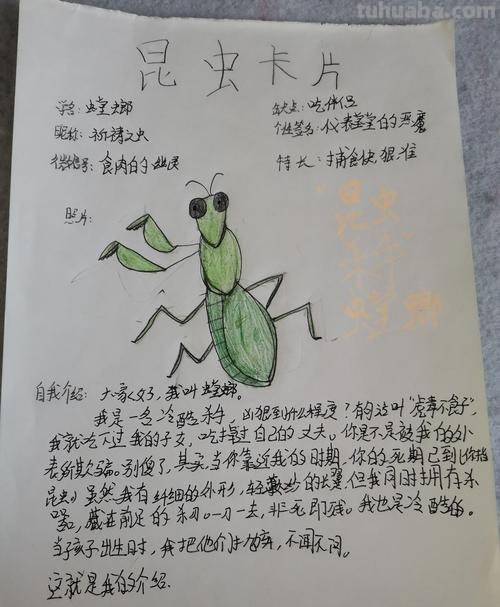 tuhuaba.com
昆虫卡片
学名:螳螂
缺点:吃伴侣
昵称:祈祷之虫
个性签名:仪表堂堂的恶魔
微信号:食肉的幽灵
特长:捕食快狠准
照片:
"昆虫
杀手"
螳螂
自我介绍:大家好,我叫螳螂。
我是一名冷酷杀手,凶狠到什么程度?有句话叫"虎毒不食子",
我就吃过我的子女,吃掉过自己的丈夫。你是不是被我的外
表所欺骗。别傻了,其实,当你靠近我的时期,你的死期已到(你指
昆虫)虽然我有纤细的外形,轻歌妙的长翼,但我同时拥有杀
器,藏在前足的刀。一刀一去,非死即残。我也是冷酷的。
当孩子出生时,我把他们,不闻不问。
这就是我的介绍.